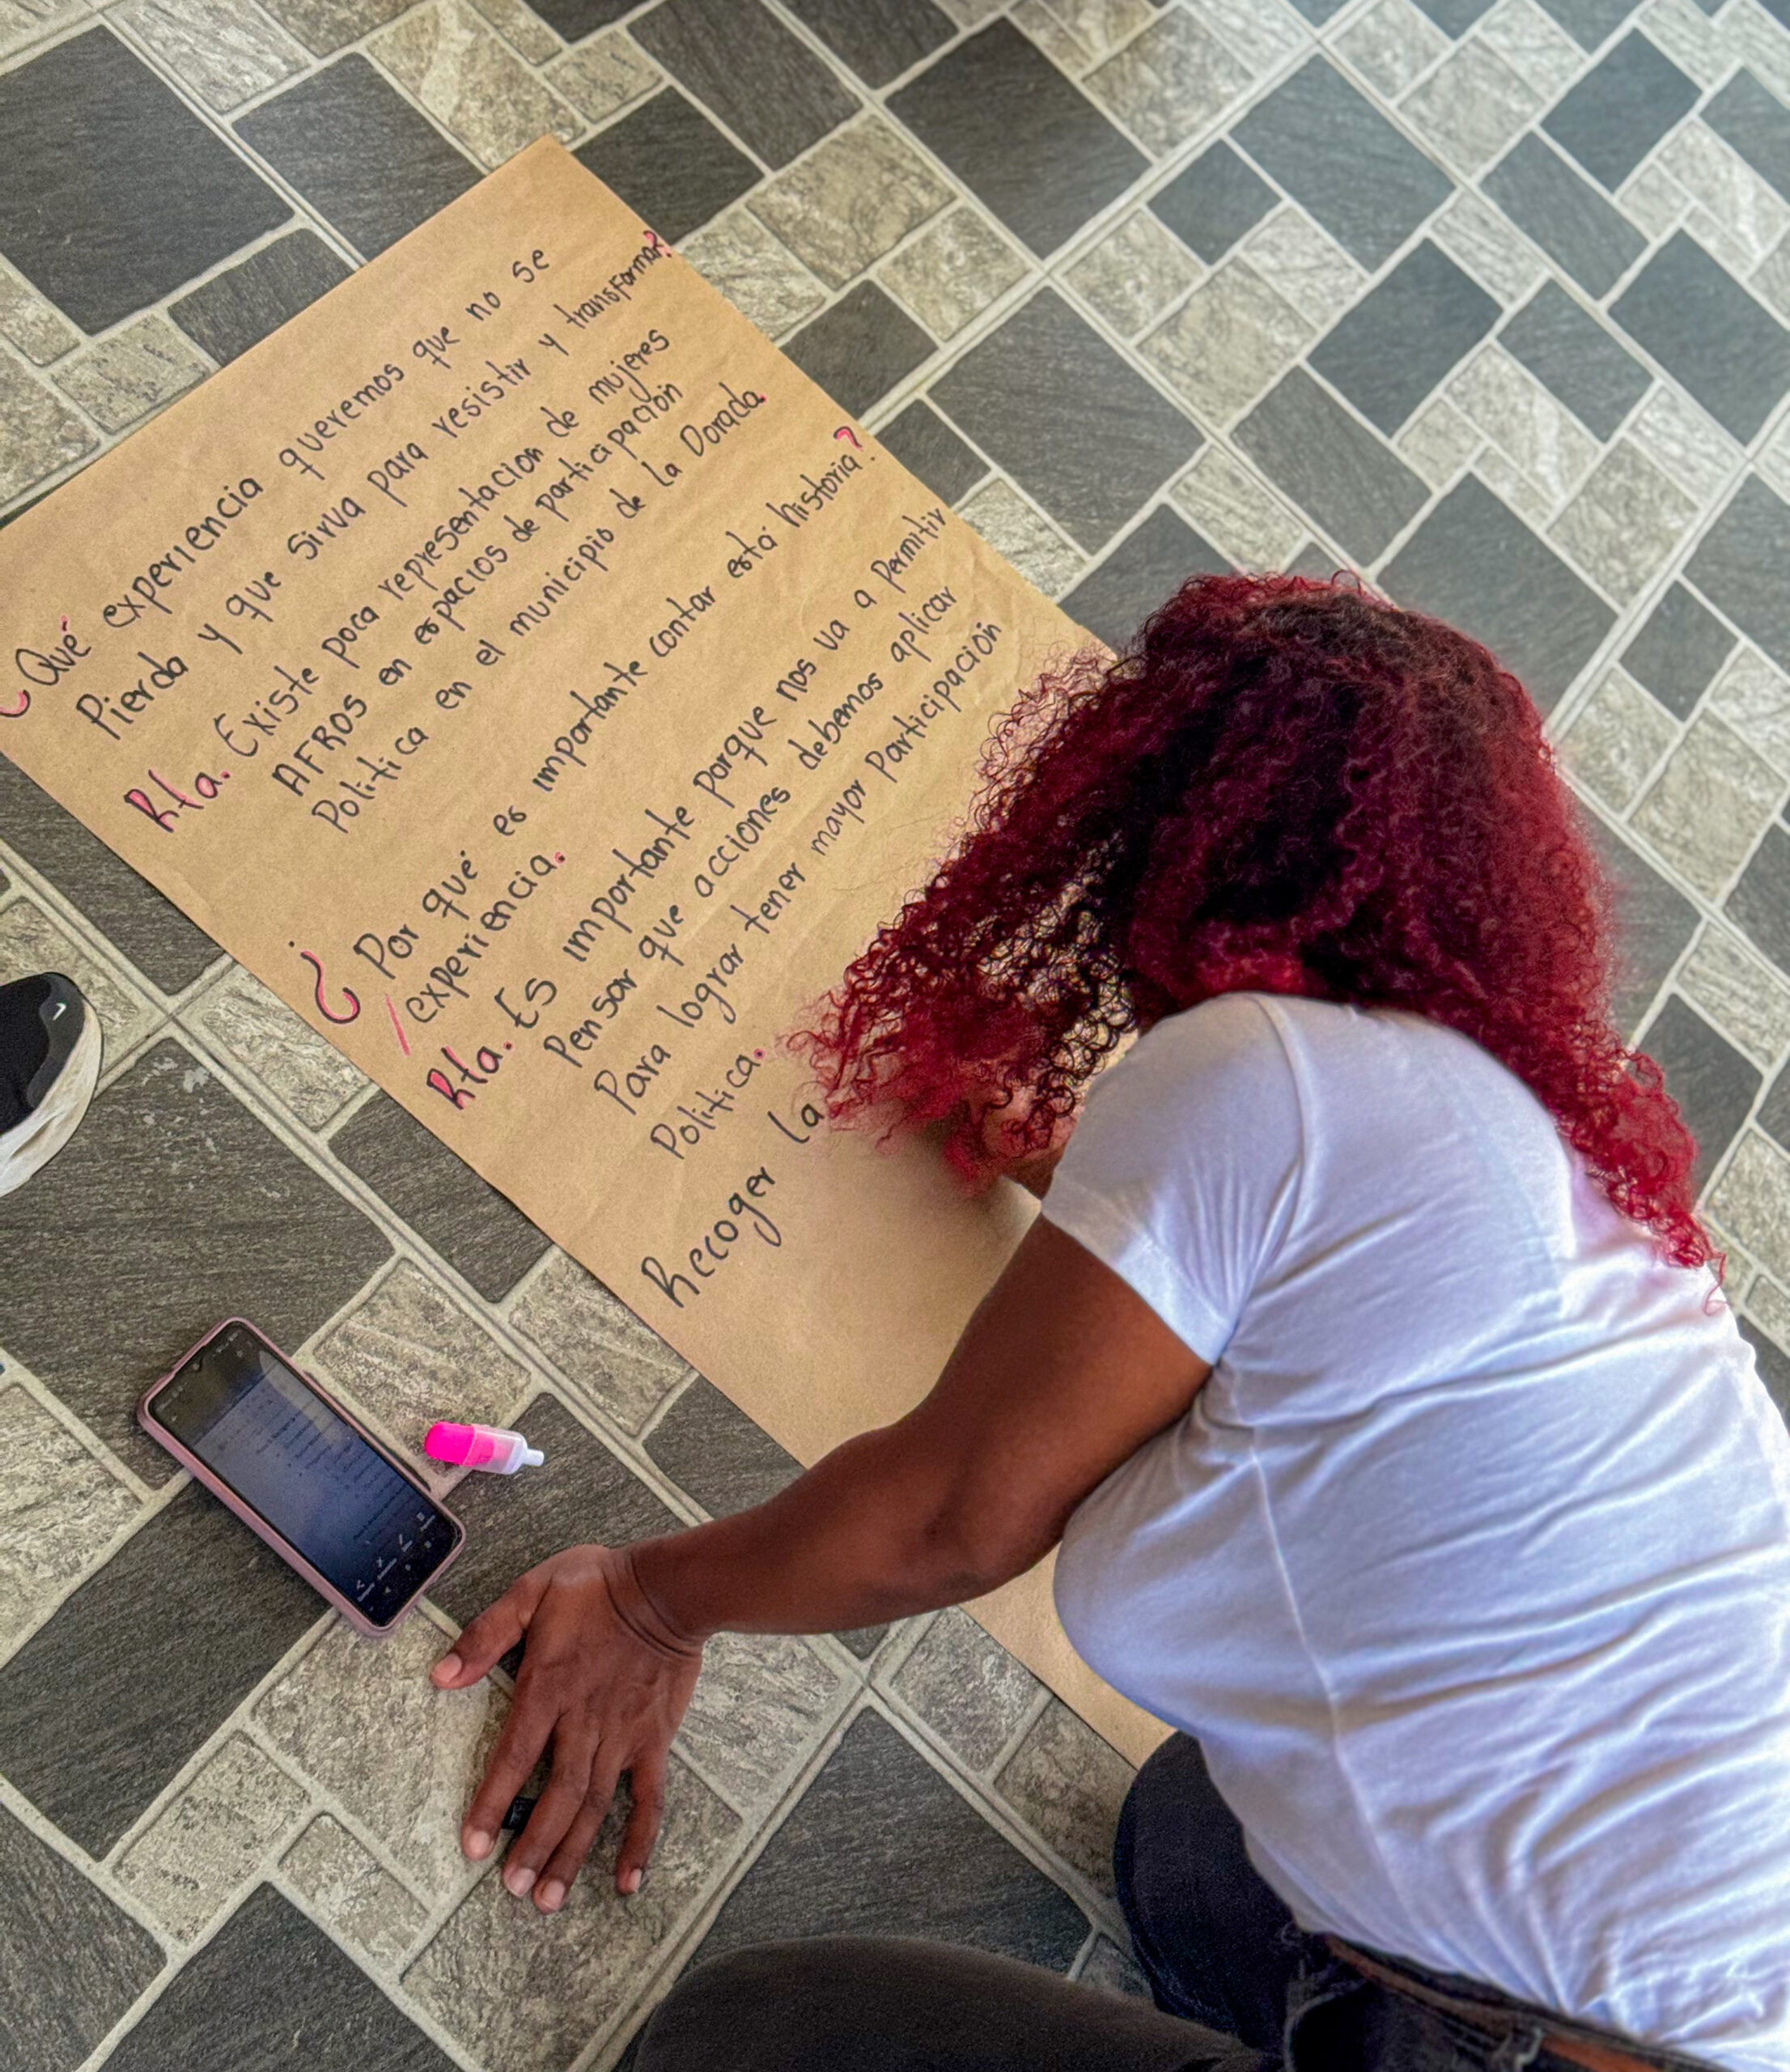 ¿Qué experiencia queremos que no se
Pierda y que sirva para resistir y transformar?
Rta. Existe poca representacion de mujeres
AFROS en espacios de participación
Politica en el municipio de La Dorada.
¿Por qué es importante contar está historia?
/experiencia.
Rta. Es importante porque nos va a permitir
Pensar que acciones debemos aplicar
Para lograr tener mayor Participación
Politica.
Recoger la